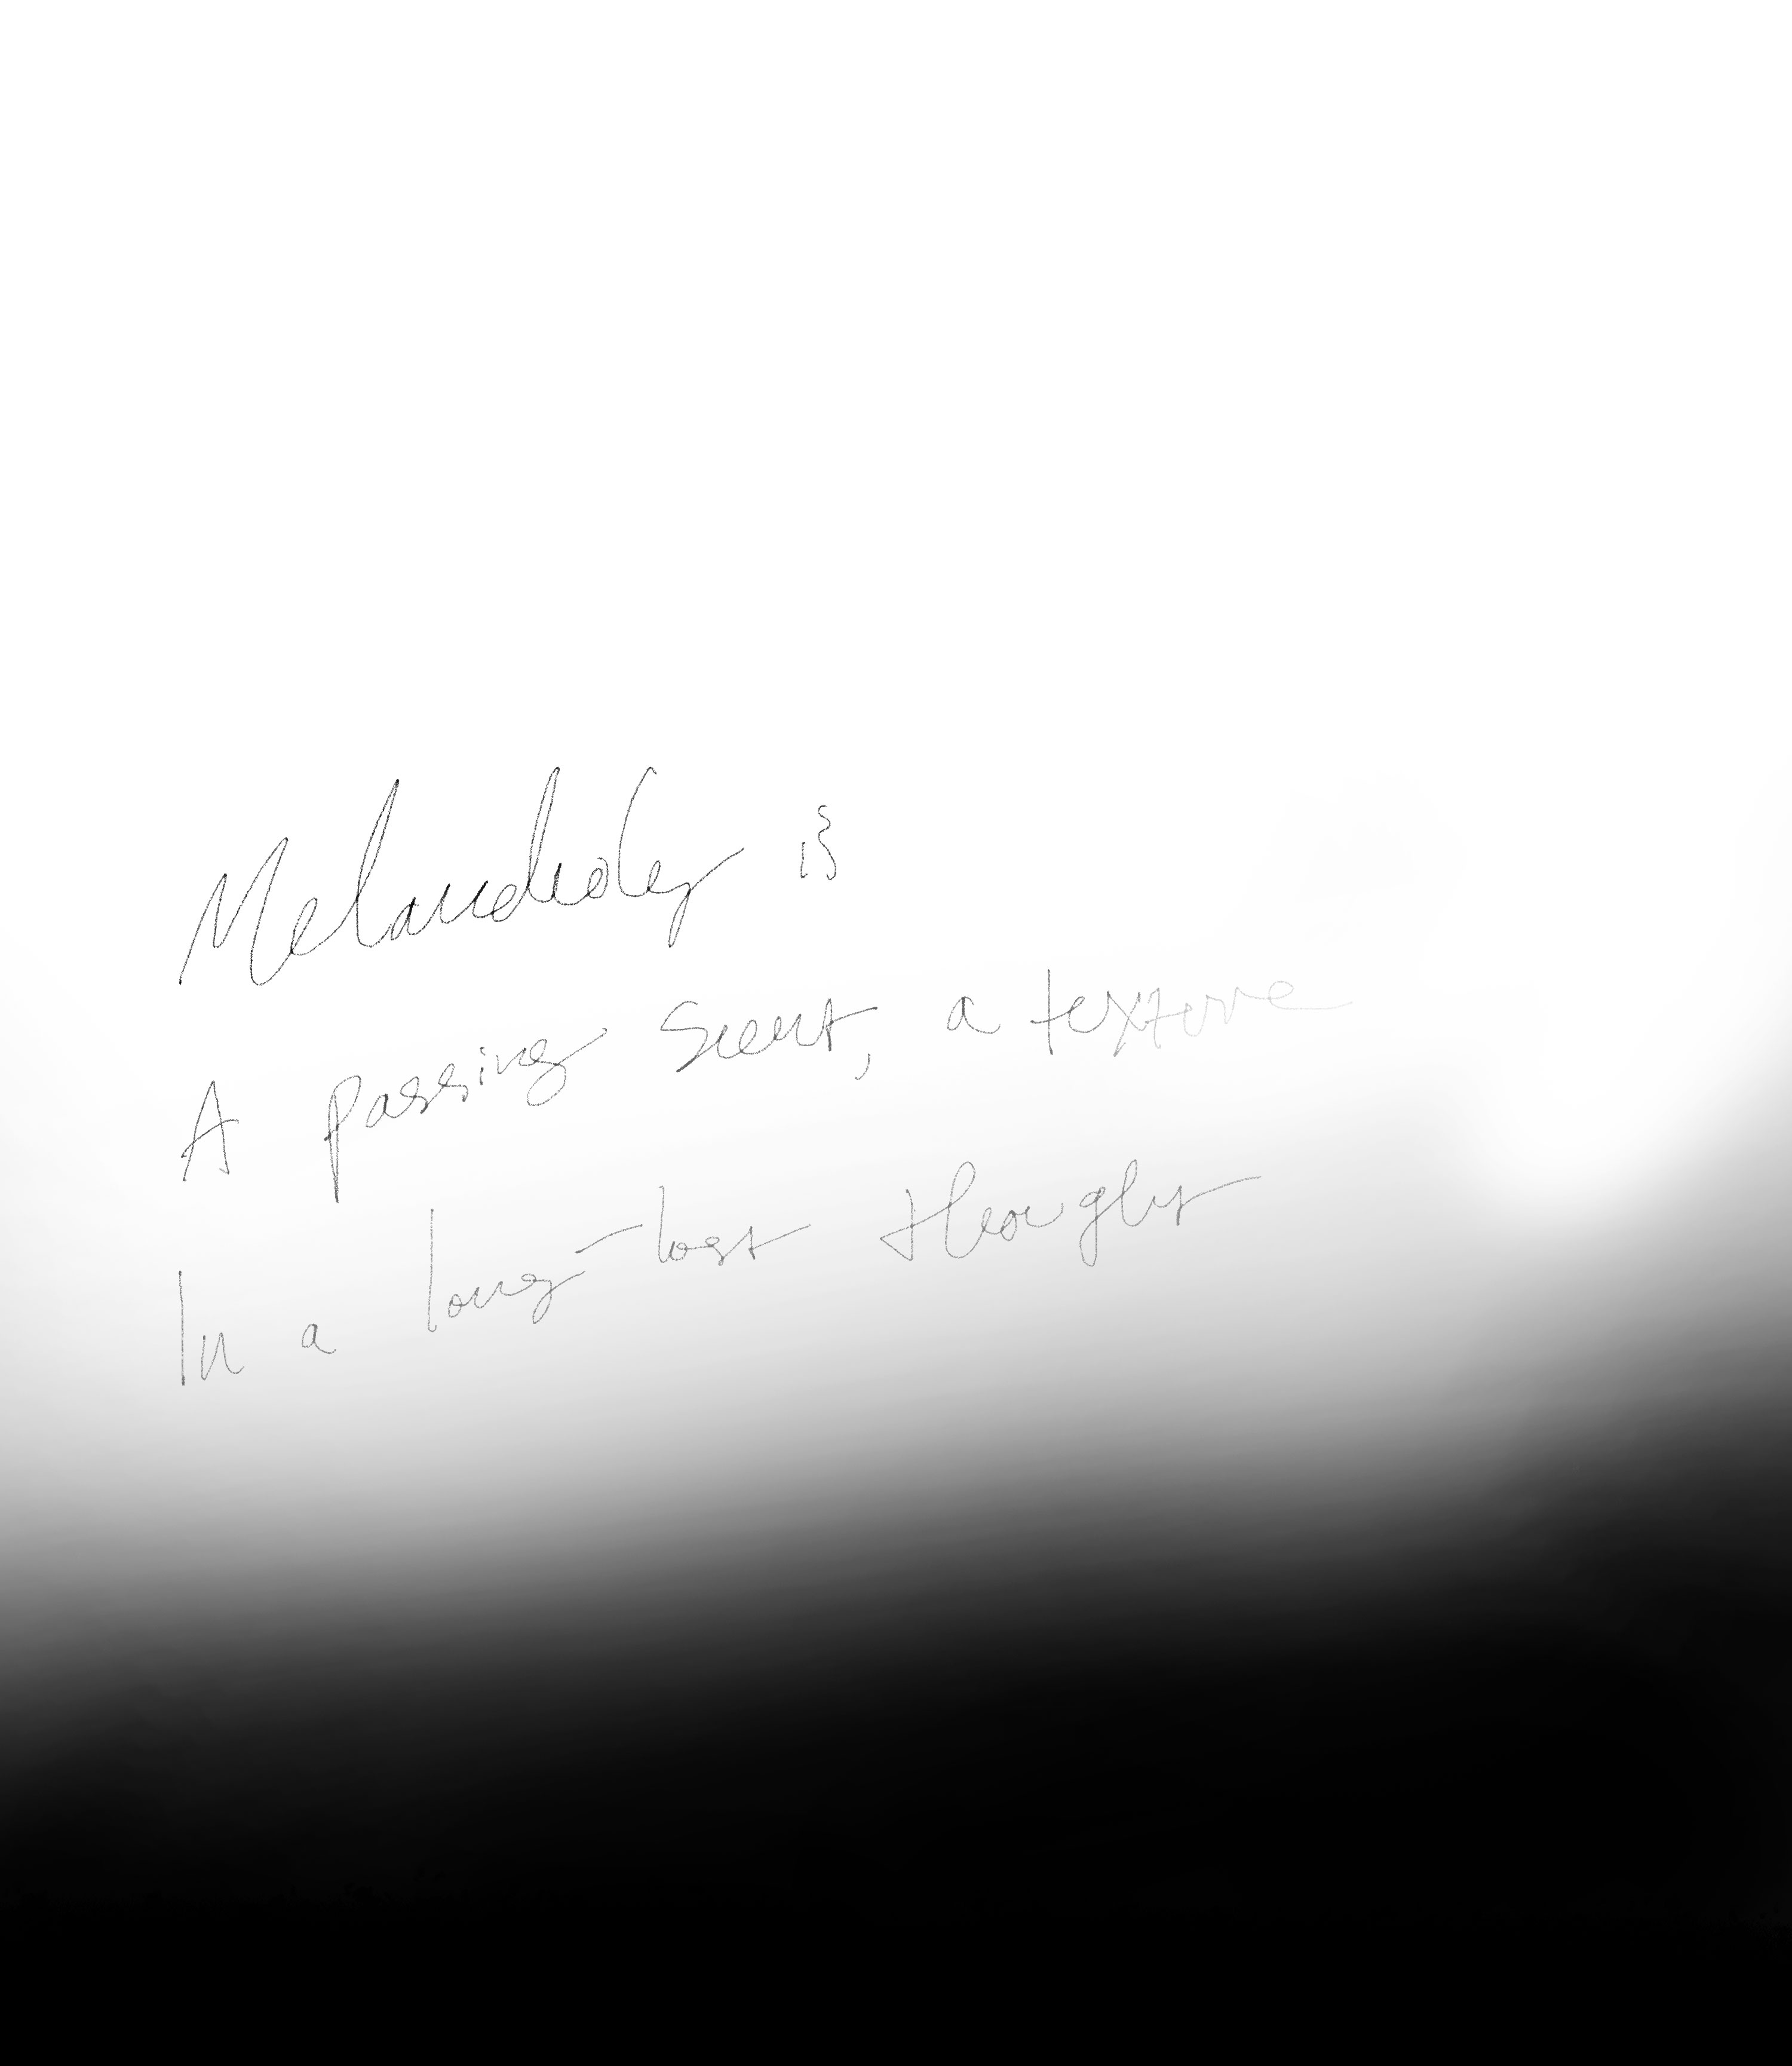 Melancholy is
A passing scent, a texture
In a long-lost thought